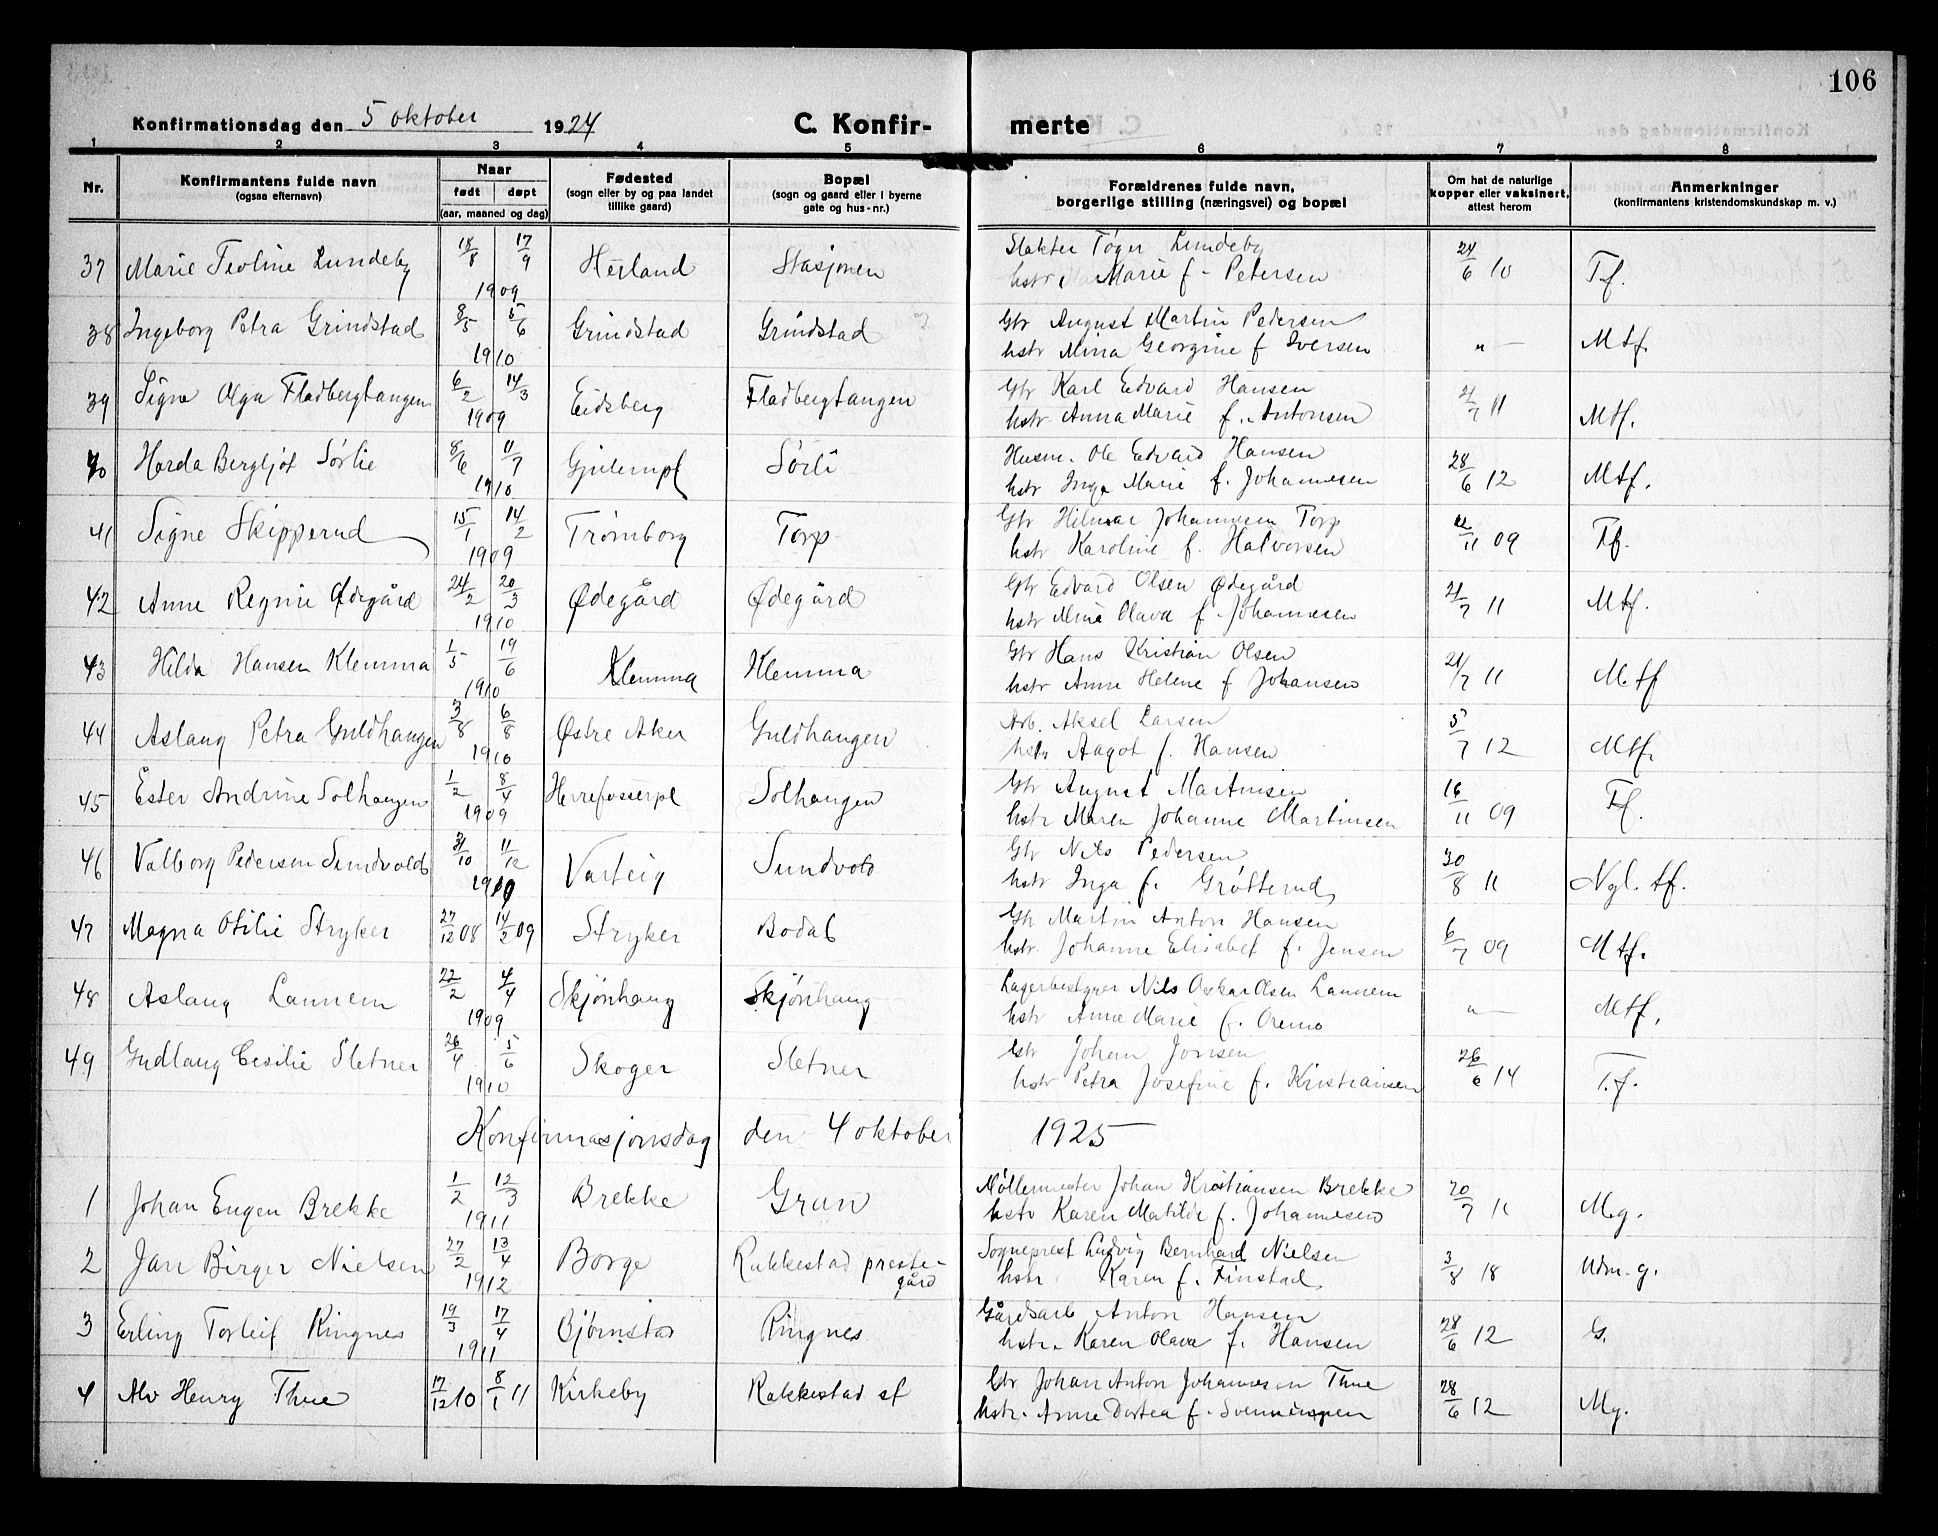 106
Konfirmationsdag den 5 oktober 1924 C. Konfir- merte
1 2 3 4 5 6 7 8
Nr.
Konfirmantens fulde navn
(ogsaa efternavn)
Naar
født døpt
(aar, maaned og dag)
Fødested
(sogn eller by og paa landet
tillike gaard)
Bopæl
(sogn og gaard eller i byerne
gate og hus-nr.)
Forældrenes fulde navn,
borgerlige stilling (næringsvei) og bopæl
Om hat de naturlige
kopper eller vaksinert,
attest herom
Anmerkninger
(konfirmantens kristendomskundskap m. v.)
37 Marie Teoline Lundeby 18/8 17/9 1909 Herland Stasjonen
Slakter Tøger Lundeby
hstr. Marie f. Petersen 24/6 10 Tf.
38 Ingeborg Petra Grindstad 8/5 5/6 1910 Grindstad Grindstad
Gbr August Martin Pedersen
hstr Mina Georgine f Iversen " — Mtf.
39 Signe Olga Fladbergtangen 6/2 14/3 1909 Eidsberg Fladbergtangen
Gbr Karl Edvard Hansen
hstr Anna Marie f. Antonsen 21/7 11 Mtf.
40 Harda Bergljot Sørlie 8/6 11/7 1910 Gjulempl Sørli
Husm. Ole Edvard Hansen
hstr Inga Marie f. Johannesen 28/6 12 Mtf.
41 Signe Skipperud 15/1 14/2 1909 Trømborg Torp
Gbr Hilmar Johannesen Torp
hstr Karoline f. Halvorsen 11/11 09 Tf.
42 Anne Regine Ødegård 24/2 20/3 1910 Ødegård Ødegård
Gbr Edvard Olsen Ødegård
hstr Mina Olava f. Johannesen 21/7 11 Mtf.
43 Hilda Hansen Klemma 1/5 19/6 1910 Klemma Klemma
Gbr Hans Kristian Olsen
hstr Anne Helene f Johansen 21/7 11 M.tf
44 Aslaug Petra Guldhaugen 3/8 6/8 1910 Østre Aker Guldhaugen
Arb. Aksel Larsen
hstr Aagot f. Hansen 5/7 12 Mtf.
45 Ester Andrine Solhaugen 1/2 8/4 1909 Herrefosserpl Solhaugen
Gbr August Martinsen
hstr Maren Johanne Martinsen 16/11 09 Tf.
46 Valborg Pedersen Sundvold 31/10 11/12 1909 Varteig Sundvold
Gbr Nils Pedersen
hstr Inga f. Grøtterud 30/8 11 Ngl. tf.
47 Magna Otilie Stryker 27/12 08 14/2 09 Stryker Bodal
Gbr Martin Anton Hansen
hstr. Johanne Elisabet f. Jensen 6/7 09 Mtf.
48 Aslaug Lannem 22/2 4/4 1909 Skjønhaug Skjønhaug
Lagerbestyrer Nils Oskar Olsen Lannem
hstr Anne Marie f. Oremo " — Mtf.
49 Gudlaug Cesilie Sletner 26/4 5/6 1910 Skoger Sletner
Gbr Johan Jonsen
hstr Petra Josefine f. Kristiansen 26/6 14 T.f.
Konfirmasjonsdag den 4 oktober 1925
1 Johan Eugen Brekke 1/2 12/3 1911 Brekke Grav
Møllermester Johan Kristiansen Brekke
hstr Karen Matilde f. Johannesen 20/7 11 M.g.
2 Jan Birger Nielsen 27/2 13/4 1912 Borge Rakkestad preste-
gård
Sogneprest Ludvig Bernhard Nielsen
hstr Karen f. Finstad 3/8 18 Udm. g.
3 Erling Torleif Ringnes 19/3 17/4 1911 Bjørnstad Ringnes
Gårdsarb Anton Hansen
hstr. Karen Olava f. Hansen 28/6 12 G.
4 Alv Henry Thue 17/12 10 8/1 11 Kirkeby Rakkestad st
Gbr Johan Anton Johannesen Thue
hstr. Anne Dortea f. Svenningsen 28/6 12 Mg.